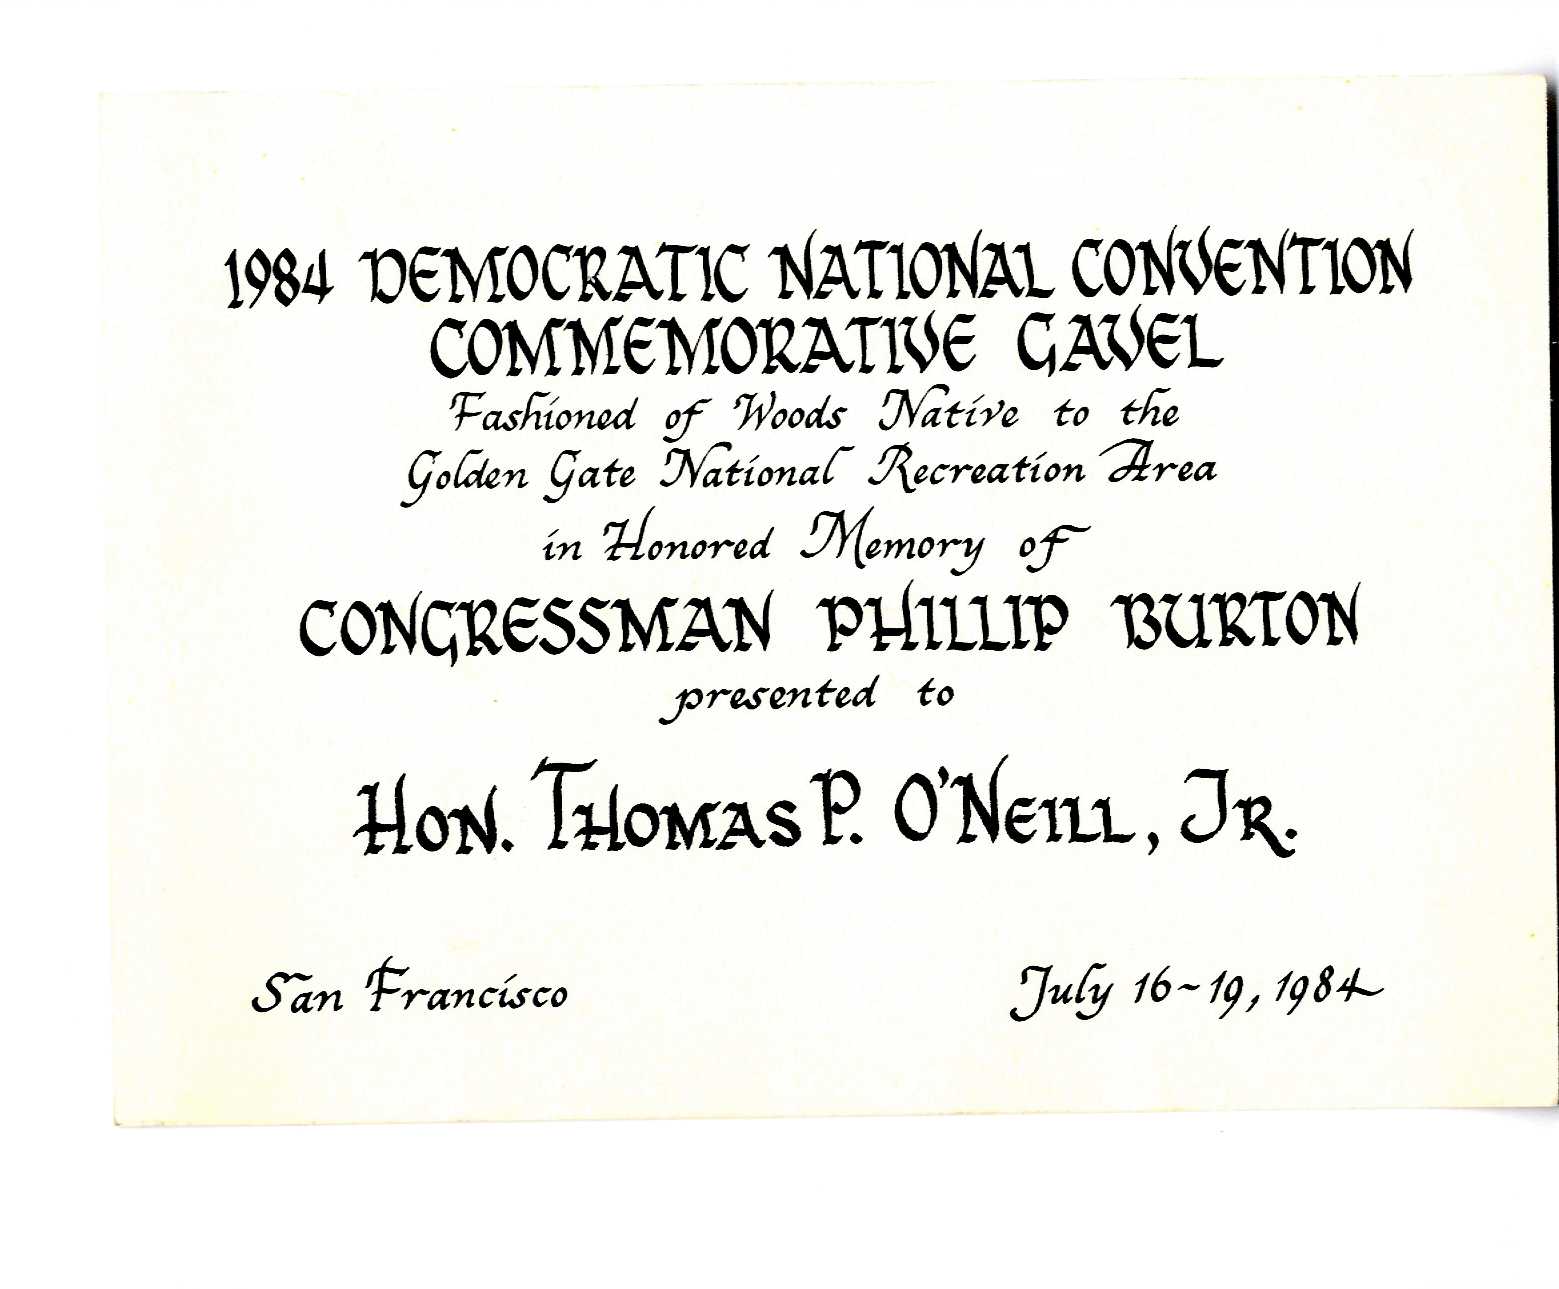 1984 DEMOCRATIC NATIONAL CONVENTION
COMMEMORATIVE GAVEL
Fashioned of Woods Native to the
Golden Gate National Recreation Area
in Honored Memory of
CONGRESSMAN PHILLIP BURTON
presented to
HON. THOMAS P. O'NEILL, JR.
San Francisco July 16~19, 1984